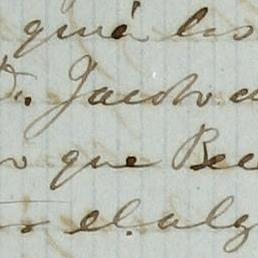 quiá los
D. Jacobo
que Bec
el alg